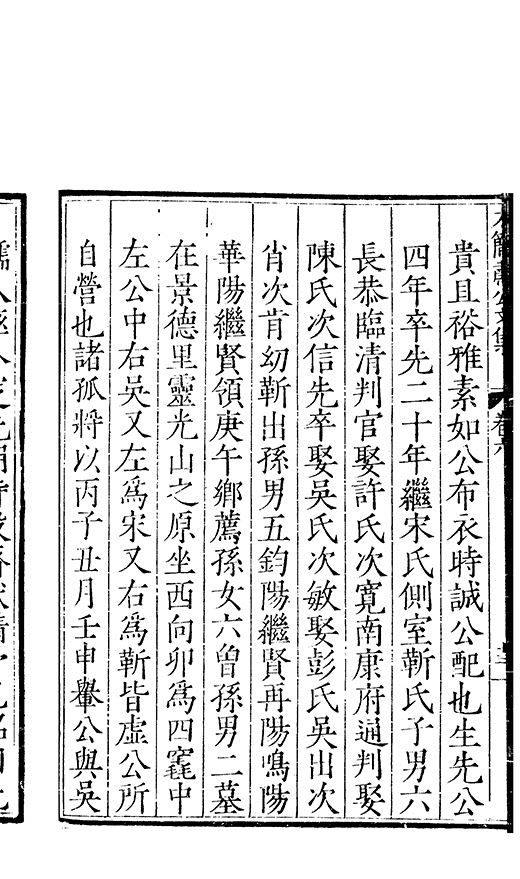 文集
卷六
貴且裕雅素如公布衣時誠公配也生先公
四年卒先二十年繼宋氏側室靳氏子男六
長恭臨清判官娶許氏次寬南康府通判娶
陳氏次信先卒娶吳氏次敏娶彭氏吳出次
肖次肯幼靳出孫男五鈞陽繼賢再陽鳴陽
華陽繼賢領庚午鄉薦孫女六曾孫男二墓
在景德里靈光山之原坐西向卯爲四窀中
左公中右吳又左爲宋又右爲靳皆虛公所
自營也諸孤將以丙子丑月壬申轝公與吳